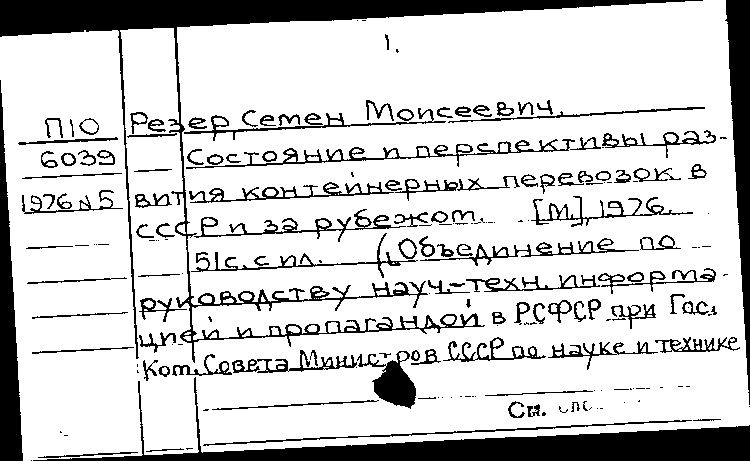 1.
П10 Резер, Семен Моисеевич.
6039 Состояние и перспективы раз-
1976 N5 вития контейнерных перевозок в
СССР и за рубежом. [М.], 1976.
51с. с ил. (Объединение по
руководству науч.-техн. информа-
цией и пропагандой в РСФСР при Гос.
Ком. Совета Министров СССР по науке и технике
См.